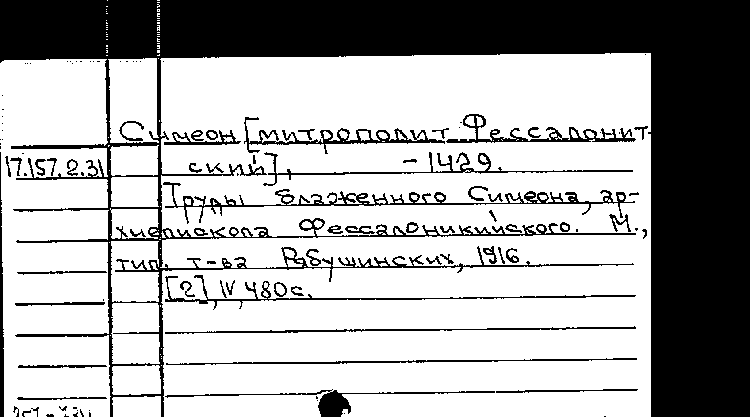 Симеон [митрополит Фессалонит-
17.157.2.31 ский], -1429.
Труды блаженного Симеона, ар-
хиепископа Фессалоникийского. М.,
тип. т-ва Рябушинских, 1916.
[2], IV, 480с.